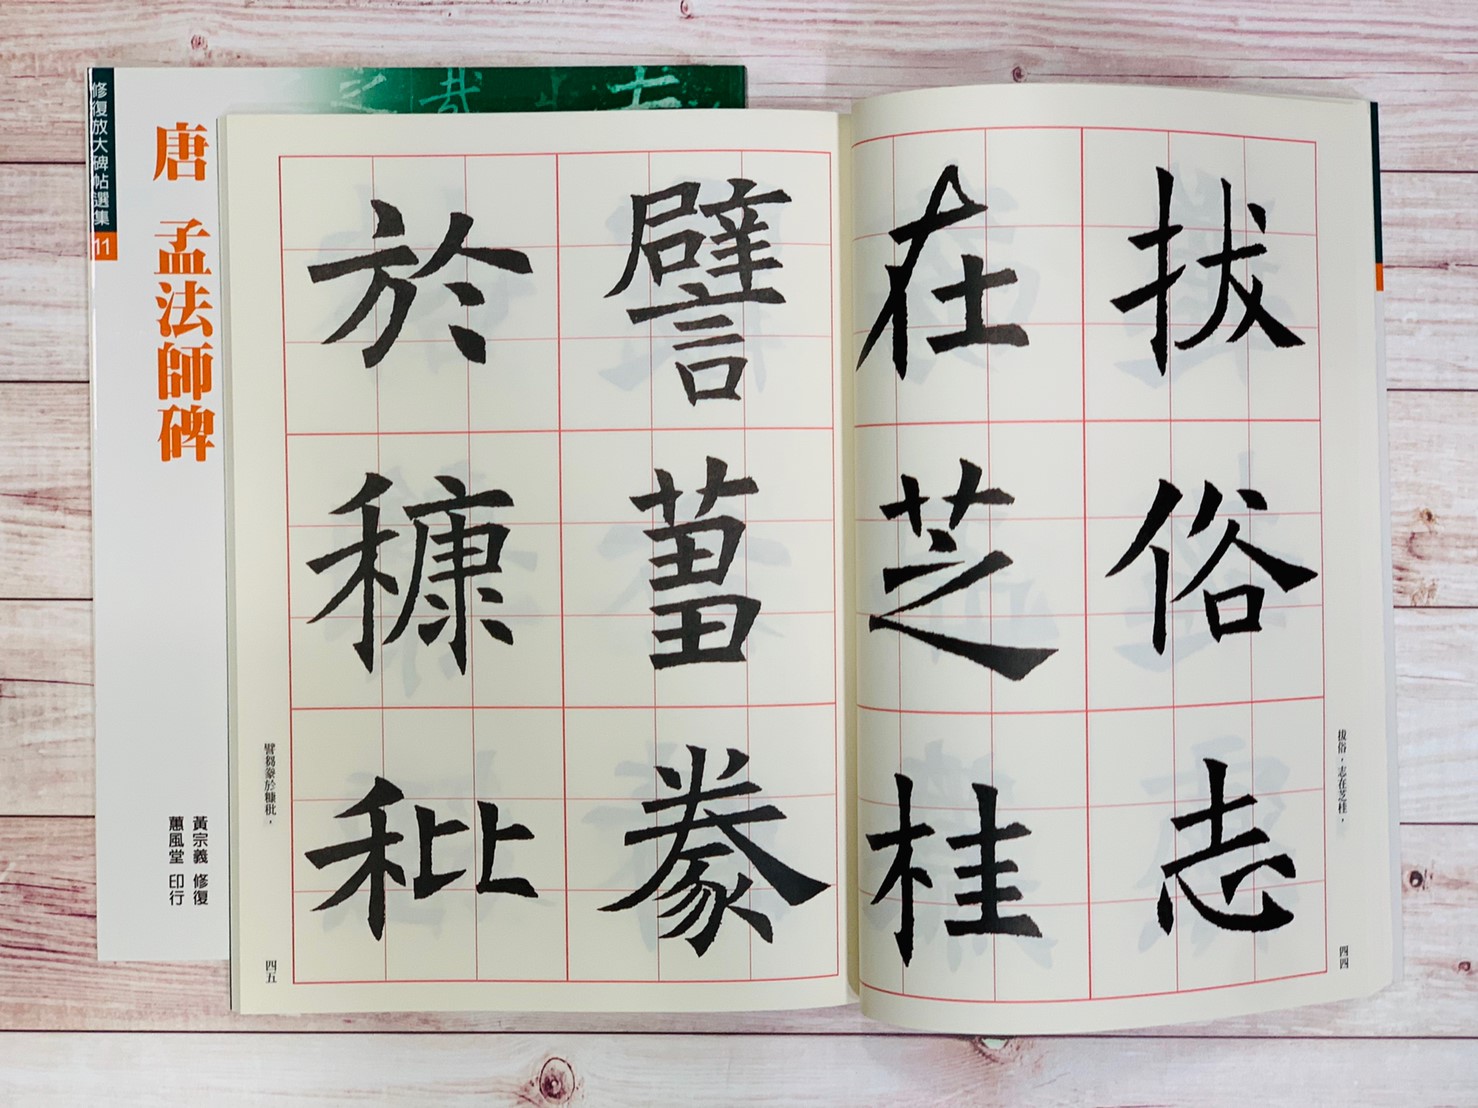 修復放大碑帖選集 11
唐 孟法師碑
黃宗義 修復
蕙風堂 印行
拔俗志
在芝桂
拔俗，志在芝桂，
四四
譬蒭豢
於糠秕
譬蒭豢於糠秕，
四五